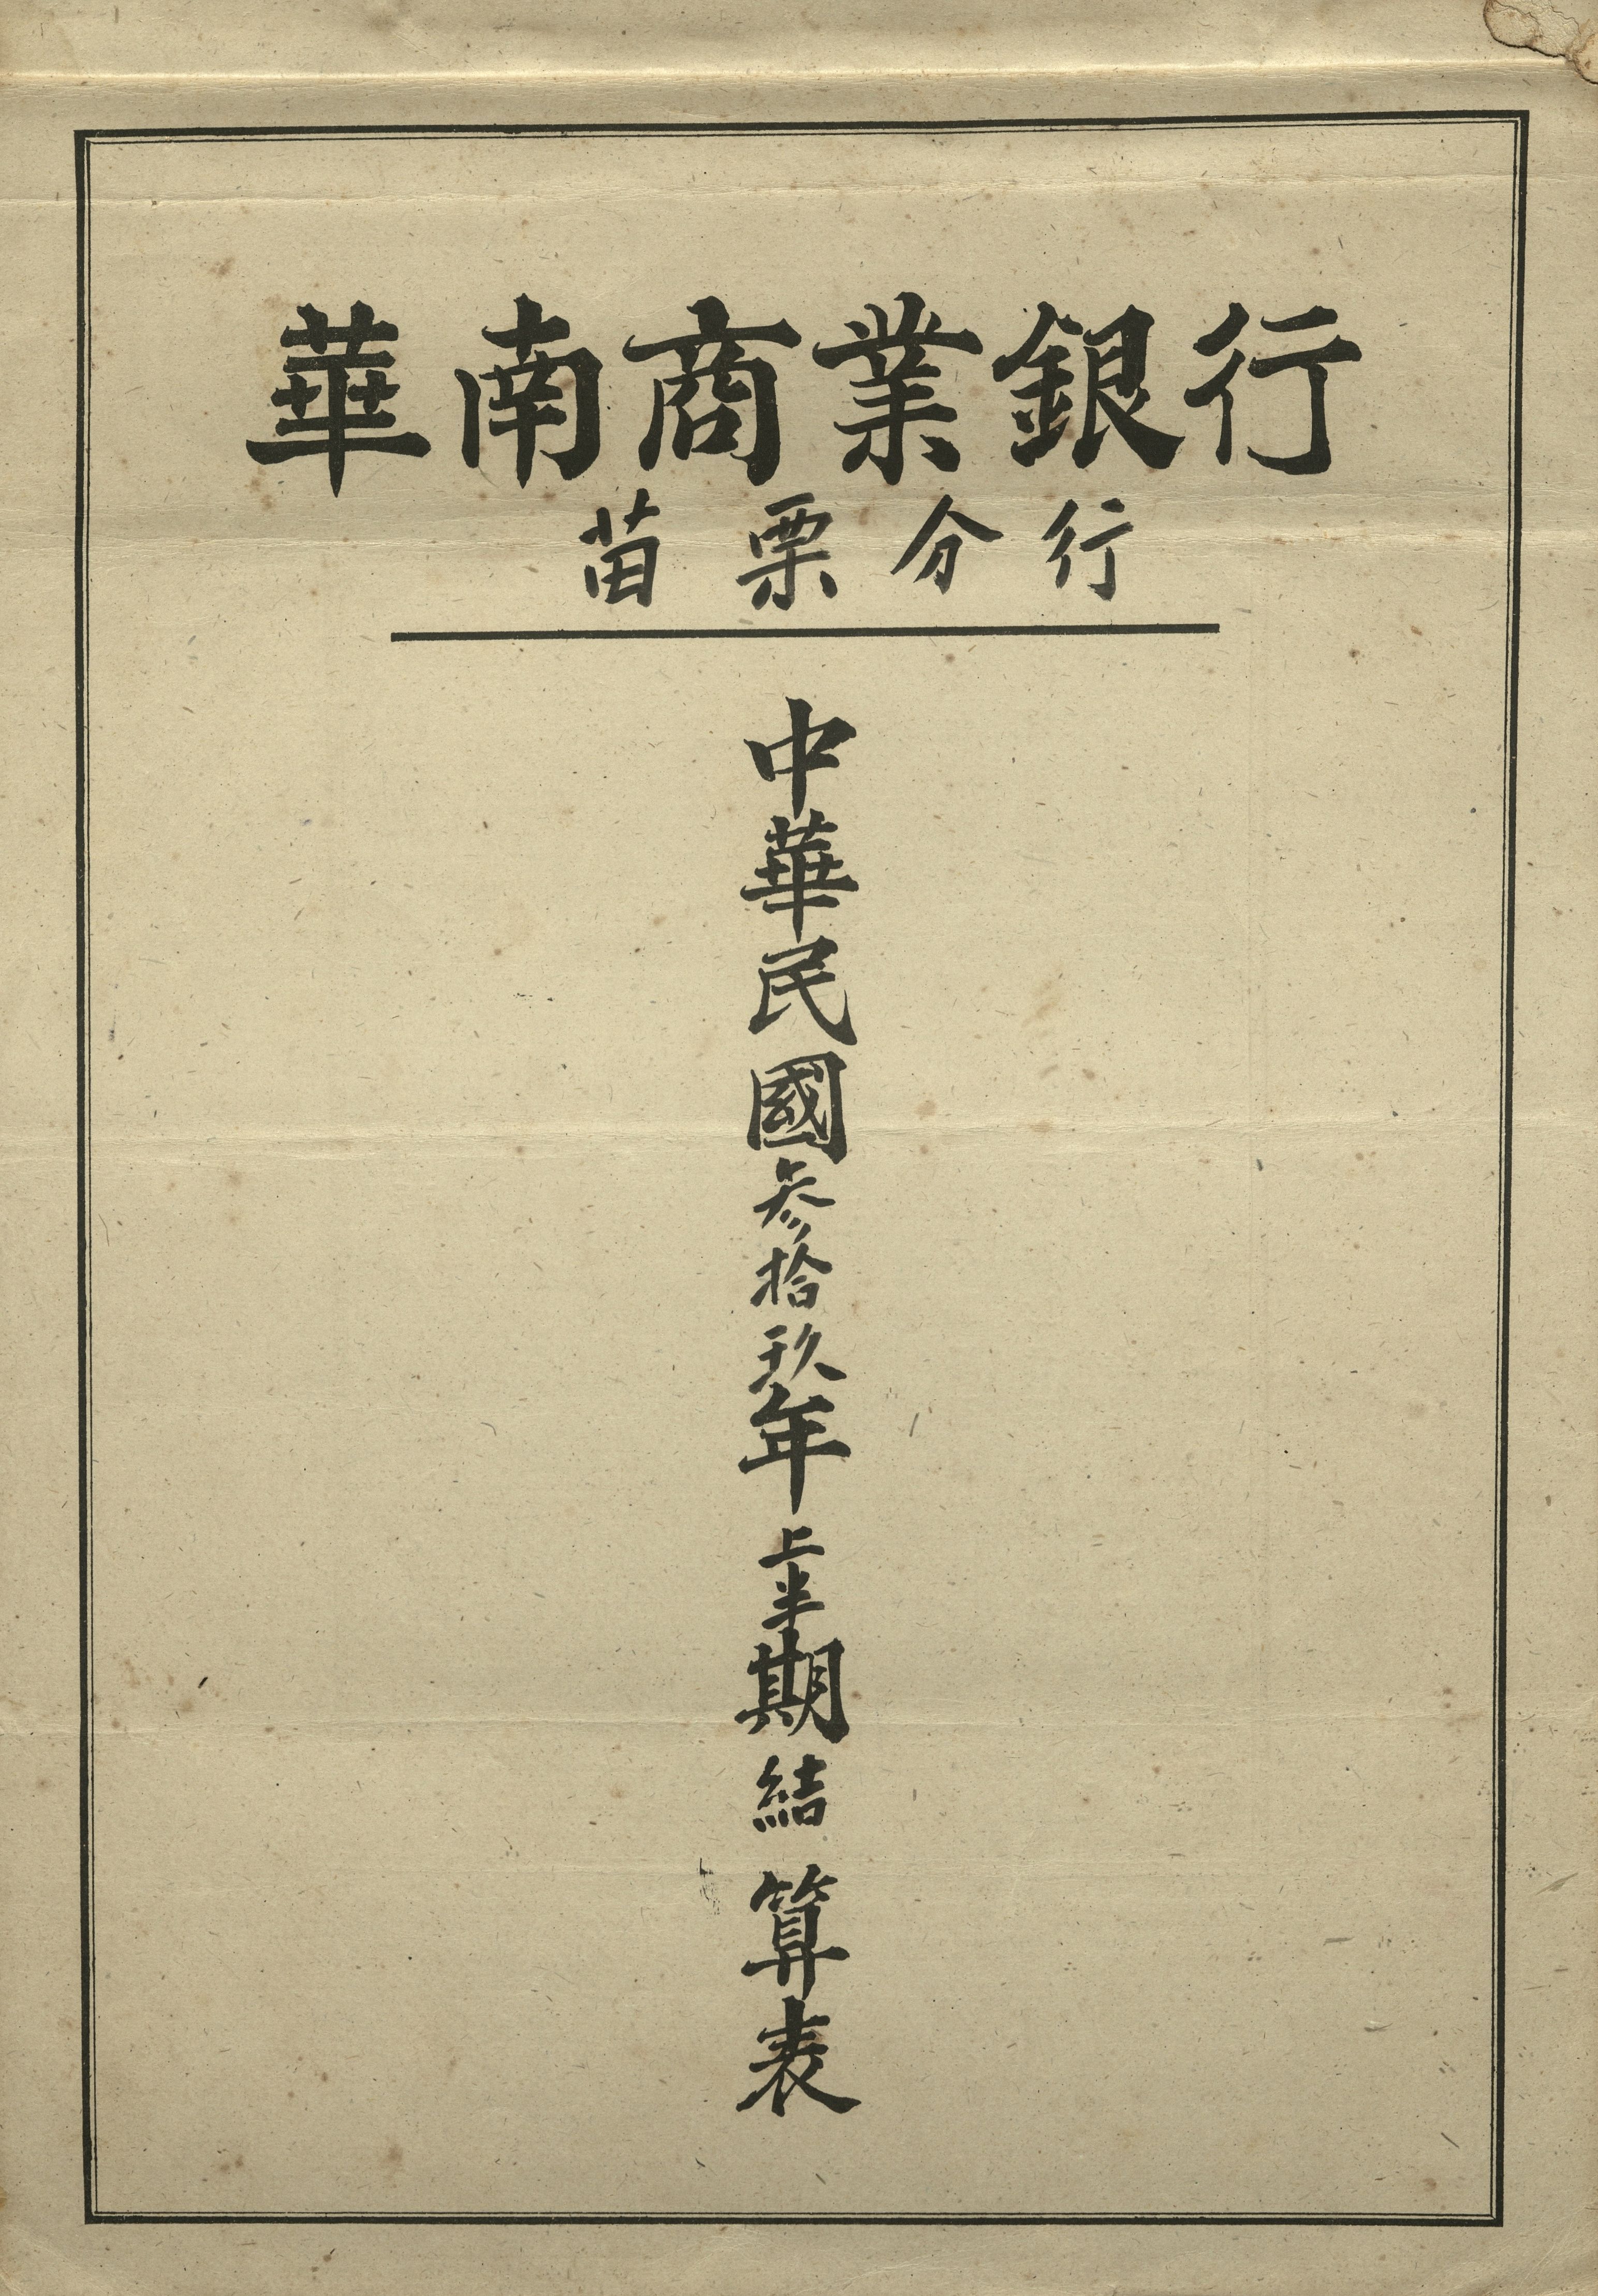 華南商業銀行
苗栗分行
中華民國叁拾玖年上半期結算表